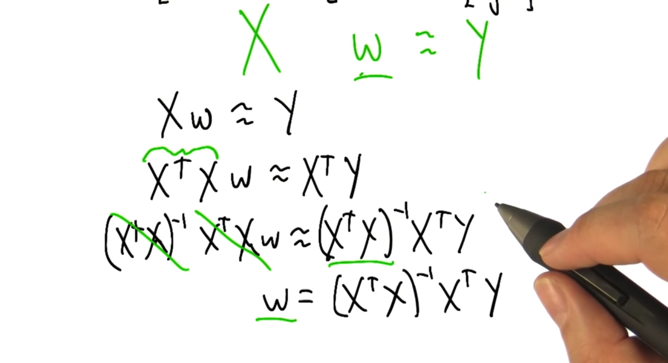 X w ≈ Y
Xw ≈ Y
XᵀX w ≈ XᵀY
(XᵀX)⁻¹ XᵀXw ≈ (XᵀX)⁻¹XᵀY
w = (XᵀX)⁻¹XᵀY